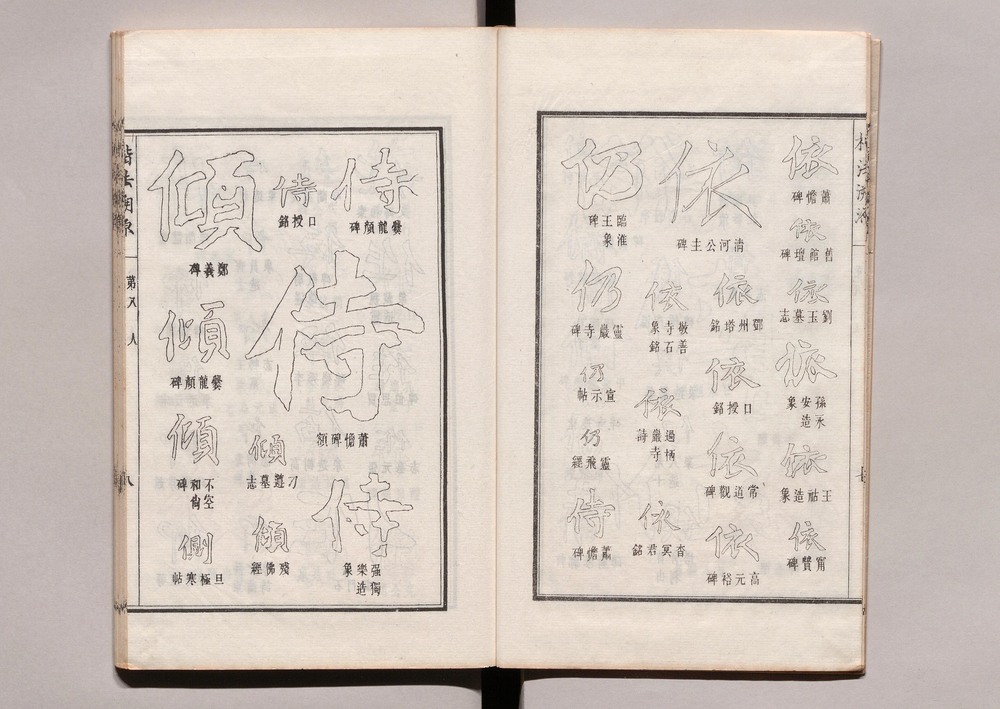 依
蕭憺碑
依
舊館壇碑
依
劉玉墓志
依
孫永安造象
依
王祜造象
依
甯贊碑
依
清河公主碑
依
鄧州塔銘
依
口授銘
依
常道觀碑
依
高元裕碑
依
敬善寺石象銘
依
過栖巖寺詩
依
杳冥君銘
仍
臨淮王象碑
仍
靈巖寺碑
仍
宣示帖
仍
靈飛經
侍
蕭憺碑
侍
爨龍顏碑
侍
蕭憺碑額
侍
强獨樂造象
侍
口授銘
傾
刁遵墓志
傾
殘佛經
傾
鄭羲碑
傾
爨龍顏碑
傾
不空和尙碑
側
旦極寒帖
楷法溯原
第八 人
八